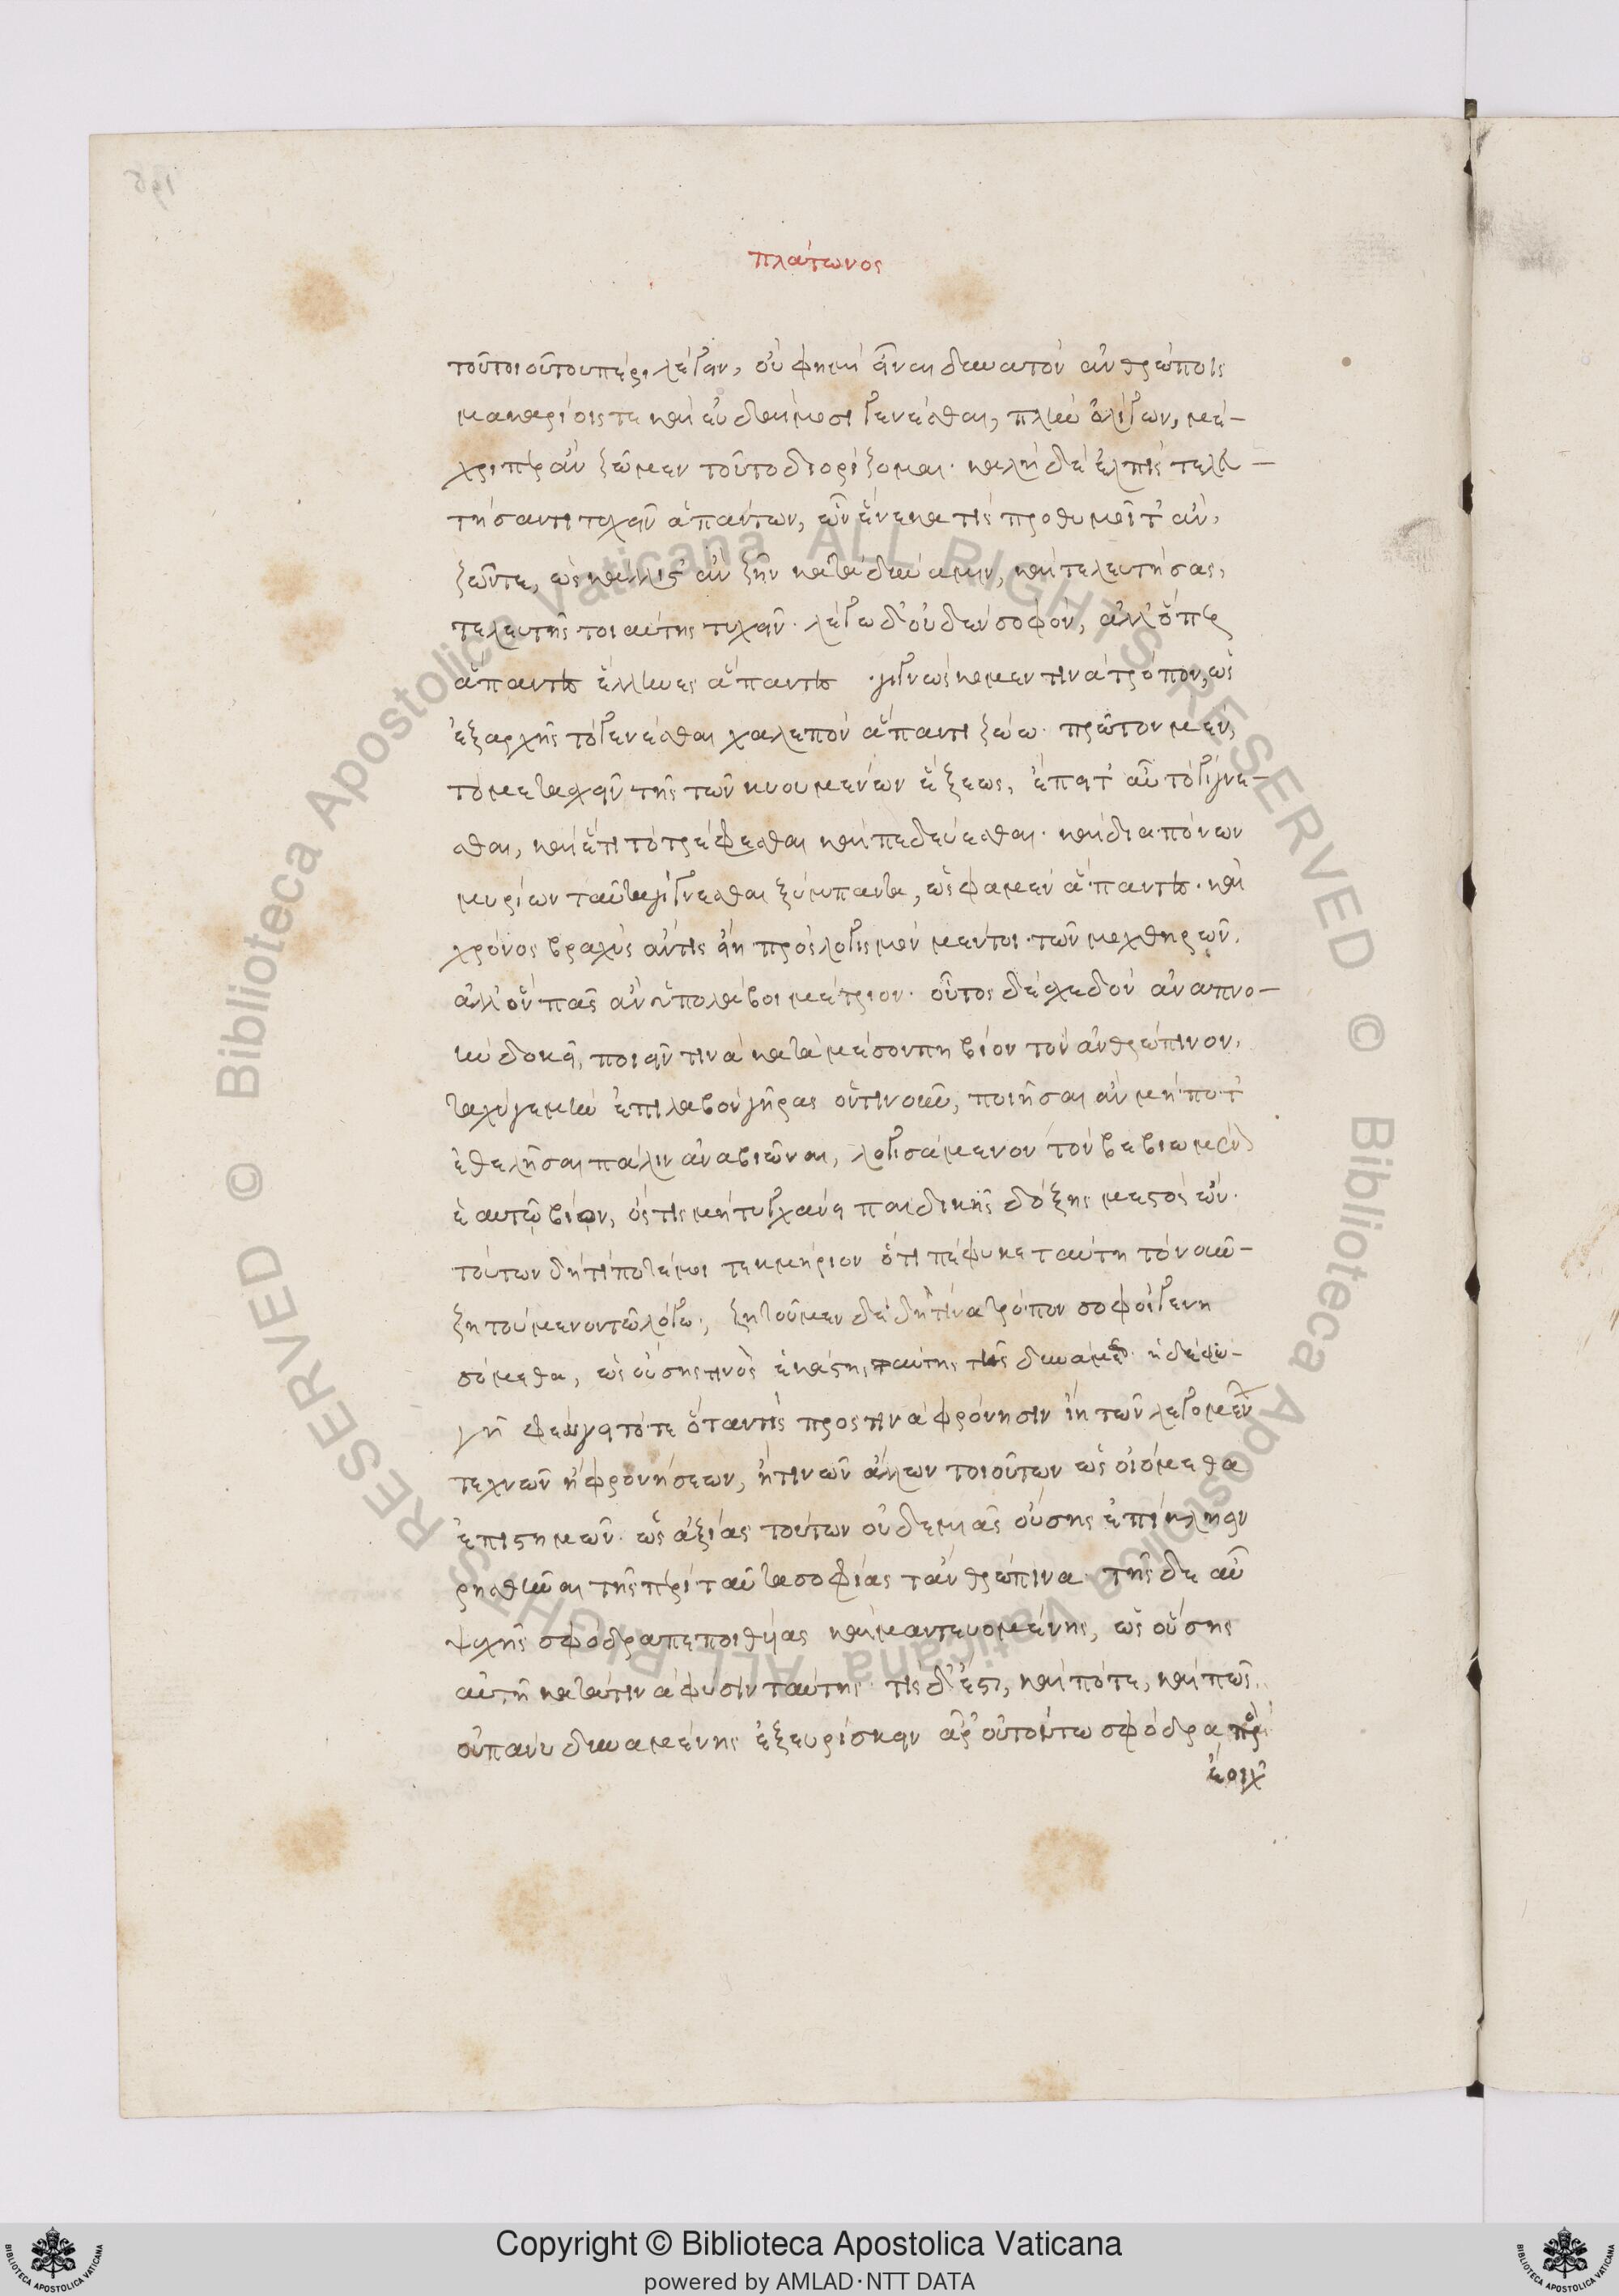 πλάτωνος
τοῦτοι οὗτου πέρι λέγειν, οὐ φημὶ εἶναι δυνατὸν ἀνθρώποις
μακαρίοις τε καὶ εὐδαίμοσι γενέσθαι, πλὴν ὀλίγων, μέ-
χρι περ ἂν ζῶμεν τοῦτο διορίζομαι· καλὴ δὲ ἐλπὶς τελευ-
τήσαντι τυχεῖν ἁπάντων, ὧν ἕνεκά τις προθυμοῖτ' ἂν,
ζῶντε, ὡς κάλλιστ' ἂν ζῆν κατὰ δύναμιν, καὶ τελευτήσας,
τελευτῆς τοιαύτης τυχεῖν· λέγω δ' οὐδὲν σοφὸν, ἀλλ' ὅπερ
ἅπαντες ἕλληνες ἅπαντες γιγνώσκομεν τινὰ τρόπον, ὡς
ἐξαρχῆς τὸ γενέσθαι χαλεπὸν ἅπαντι ζώω· πρῶτον μὲν
τὸ μετασχεῖν τῆς τῶν κυουμένων ἕξεως, ἔπειτ' αὖ τὸ γίγνε-
σθαι, καὶ ἔτι τὸ τρέφεσθαι καὶ πεδεύεσθαι· καὶ διὰ πόνων
μυρίων ταῦτα γίγνεσθαι ξύμπαντα, ὥς φαμεν ἅπαντες· καὶ
χρόνος βραχὺς ἄν τις εἴη πρὸς λογισμὸν μέντοι τῶν μοχθηρῶν,
ἀλλ' ὃν πᾶς ἂν ὑπολάβοι μέτριον· οὗτος δὲ σχεδὸν ἀναπνο-
ὴν δοκεῖ, ποιεῖν τινὰ κατὰ μέσον πη βίον τὸν ἀνθρώπινον,
ταχύ γε μὴν ἐπιλαβὸν γῆρας ὁντινοῦν, ποιῆσαι ἂν μή ποτ'
ἐθελῆσαι πάλιν ἀναβιῶναι, λογισάμενον τὸν βεβιωμένον
ἑαυτῷ βίον, ὅς τις μὴ τυγχάνει παιδικῆς δόξης μεστὸς ὤν·
τούτων δὴ τί ποτέ μοι τεκμήριον ὅτι πέφυκε ταύτη τὸ νῦν
ζητούμενον τῷ λόγω, ζητοῦμεν δὲ δὴ τίνα τρόπον σοφοὶ γενη
σόμεθα, ὡς οὔσης τινὸς ἑκάστης ταύτης τῆς δυνάμεως· ἡ δὲ φυ-
γῆ φεύγει τότε ὅταν τις πρός τινα φρόνησιν ἴη τῶν λεγομένων
τεχνῶν ἢ φρονήσεων, ἤ τινων ἄλλων τοιούτων ὡς οἰόμεθα
ἐπιστημῶν· ὡς ἀξίας τούτων οὐδεμιᾶς οὔσης ἐπίκλησιν
ῥηθῆναι τῆς περὶ ταῦτα σοφίας τἀνθρώπινα· τῆς δὲ αὖ
ψυχῆς σφόδρα πεποιθυίας καὶ μαντευομένης, ὡς οὔσης
αὐτῇ κατά τινα φύσιν ταύτης· τίς δ' ἔστι, καὶ πότε, καὶ πῶς,
οὐ πάνυ δυναμένης ἐξευρίσκειν ἆρ' οὐ τούτω σφόδρα προ
έοιχ'